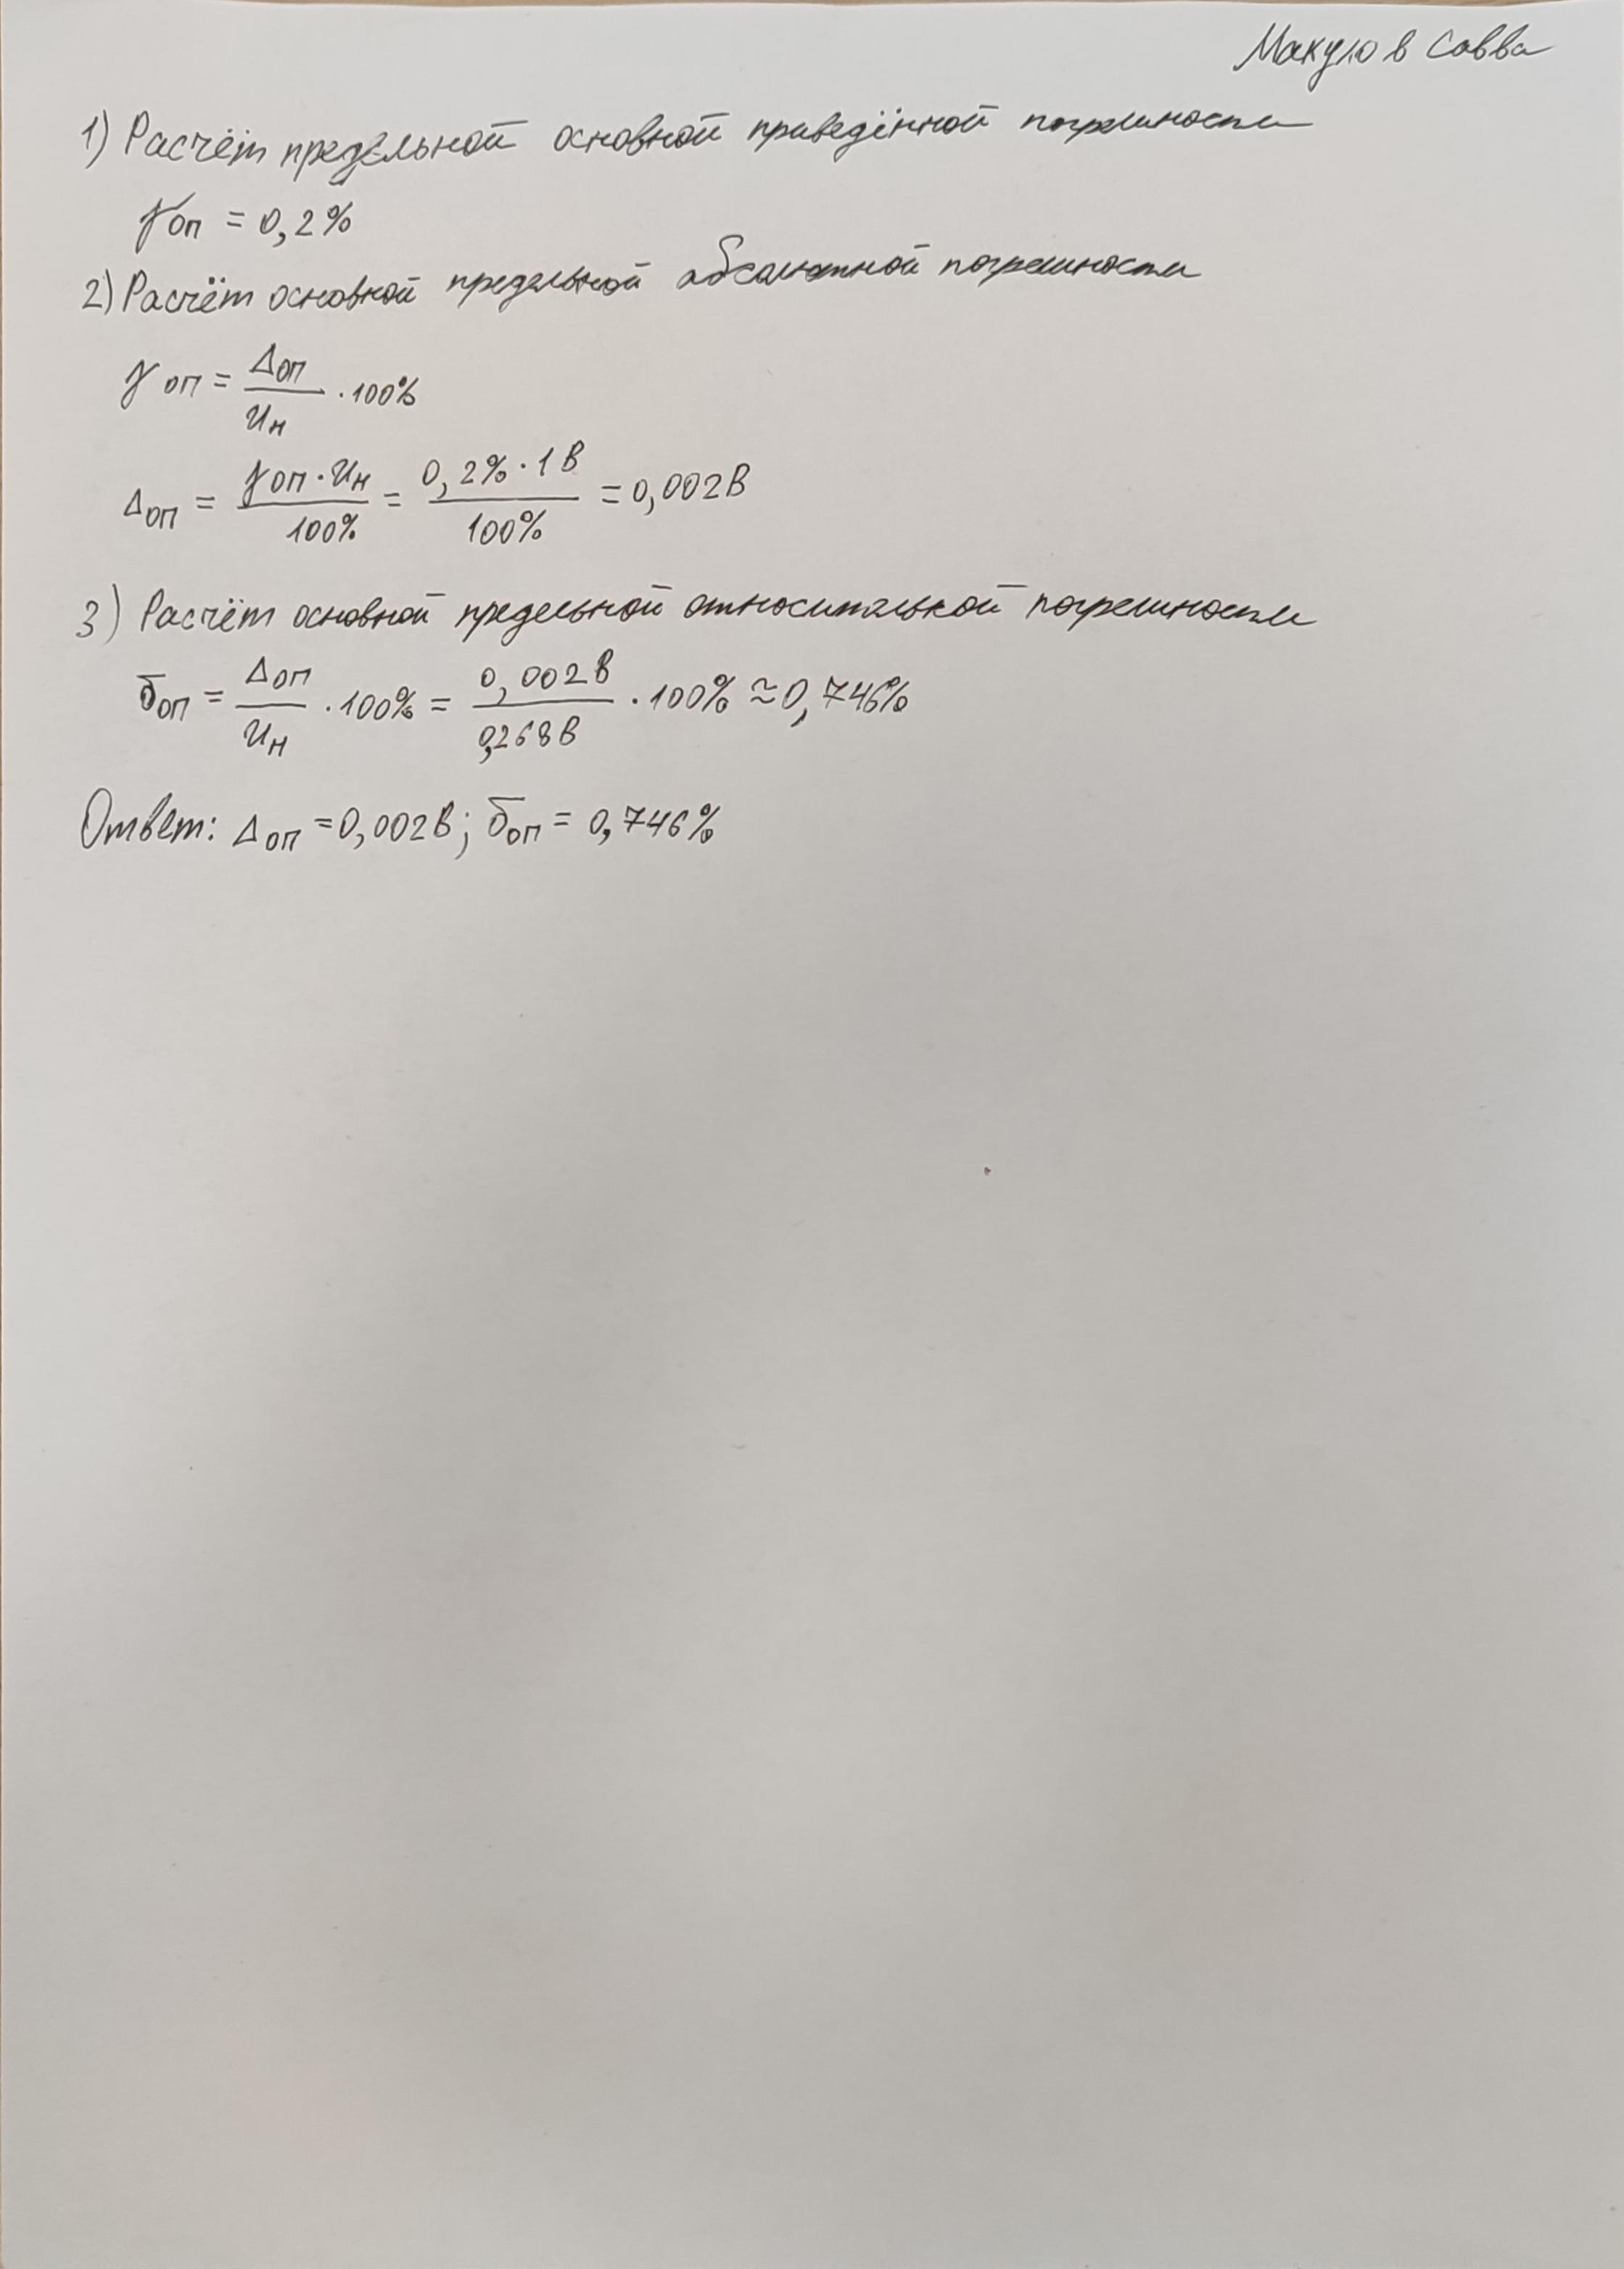 Макулов Савва
1) Расчёт предельной основной приведённой погрешности
γоп = 0,2%
2) Расчёт основной предельной абсолютной погрешности
γоп = Δоп / Uн · 100%
Δоп = γоп · Uн / 100% = 0,2% · 1 В / 100% = 0,002 В
3) Расчёт основной предельной относительной погрешности
δоп = Δоп / Uн · 100% = 0,002 В / 0,268 В · 100% ≈ 0,746%
Ответ: Δоп = 0,002 В; δоп = 0,746%